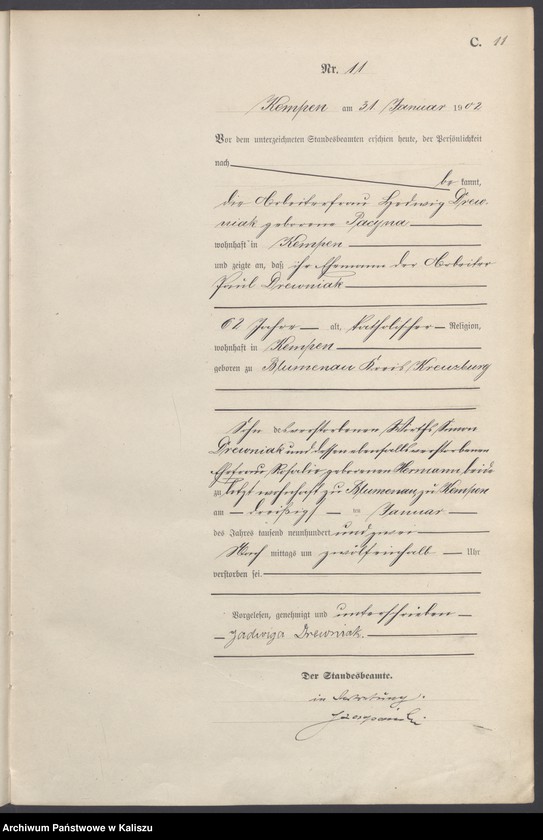 C. 11
Nr. 11
Kempen am 31 Januar 1902
Vor dem unterzeichneten Standesbeamten erschien heute, der Persönlichkeit
nach
be kannt,
die Arbeiterfrau Hedwig Drew-
niak geborene Pacyna
wohnhaft in Kempen
und zeigte an, daß ihr Ehemann der Arbeiter
Paul Drewniak
62 Jahre alt, katholischer Religion,
wohnhaft in Kempen
geboren zu Blumenau Kreis Kreuzburg
Sohn des verstorbenen Wirths Simon
Drewniak und dessen ebenfalls verstorbenen
Ehefrau Rosalie geborenen Hermann beide
zu letzt wohnhaft zu Blumenau, zu Kempen
am dreißigsten Januar
des Jahres tausend neunhundert und zwei
Nach mittags um zwölfeinhalb Uhr
verstorben sei.
Vorgelesen, genehmigt und unterschrieben
Jadwiga Drewniak.
Der Standesbeamte.
in Vertretung.
Archiwum Państwowe w Kaliszu